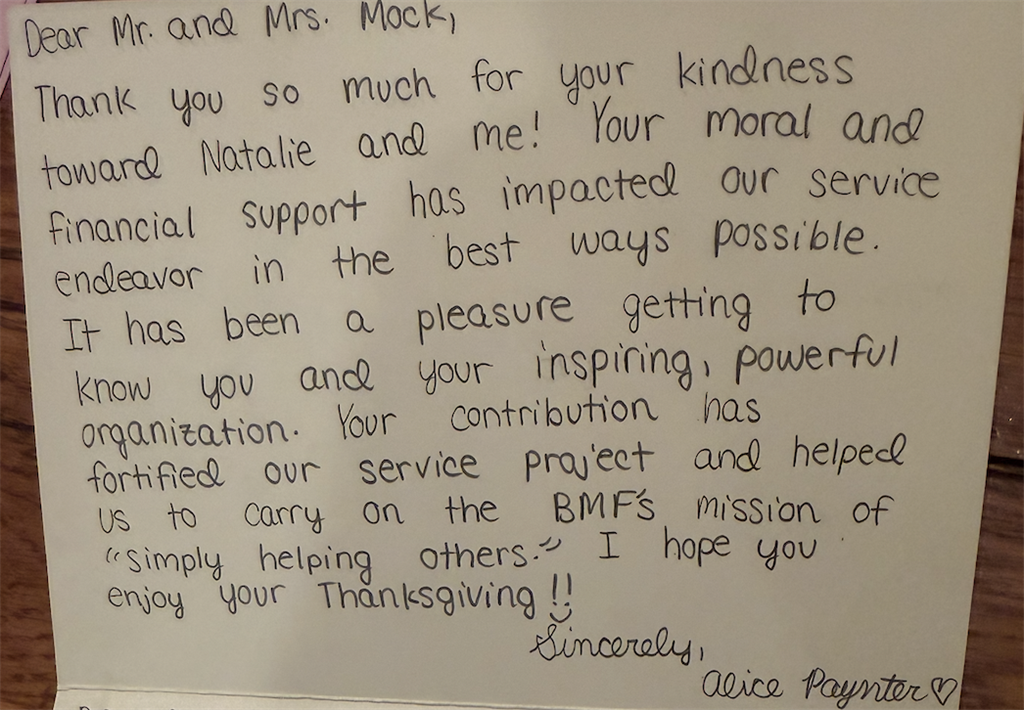 Dear Mr. and Mrs. Mock,
Thank you so much for your kindness
toward Natalie and me! Your moral and
financial support has impacted our service
endeavor in the best ways possible.
It has been a pleasure getting to
know you and your inspiring, powerful
organization. Your contribution has
fortified our service project and helped
us to carry on the BMF's mission of
"simply helping others." I hope you
enjoy your Thanksgiving!!
Sincerely,
Alice Paynter♡